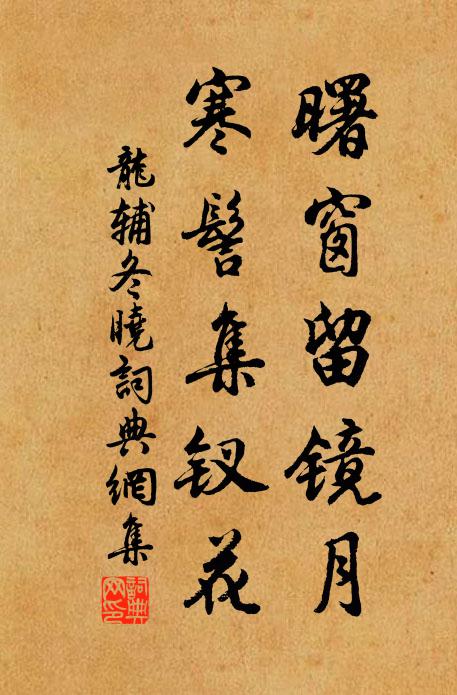 曙窗留镜月
寒髻集钗花
龍辅冬曉詞典網集
詞典网印